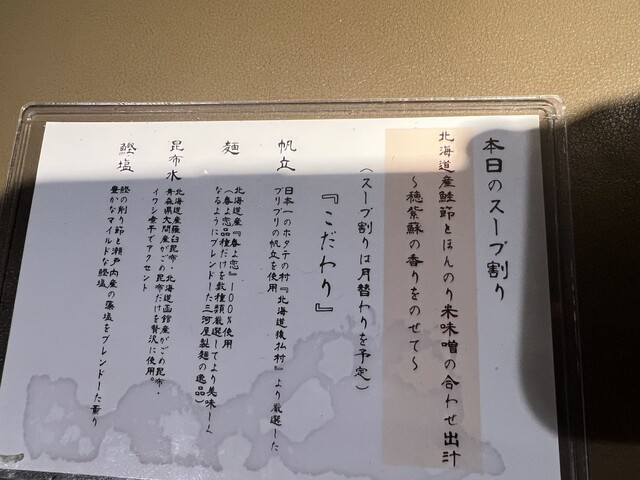 本日のスープ割り
北海道産鮭節とほんのり米味噌の合わせ出汁
～穂紫蘇の香りをのせて～
（スープ割りは月替わりを予定）
『こだわり』
帆立
日本一のホタテの村『北海道猿払村』より厳選した
プリプリの帆立を使用
麺
北海道産『春よ恋』100%使用
（春よ恋品種だけを数種類厳選してより美味しく
なるようにブレンドした三河屋製麺の逸品）
昆布水
北海道産羅臼昆布・北海道函館産がごめ昆布・
青森県大間産がごめ昆布だけを贅沢に使用。
イワシ煮干でアクセント
鰹塩
鰹の削り節と瀬戸内産の藻塩をブレンドした香り
豊かなマイルドな鰹塩